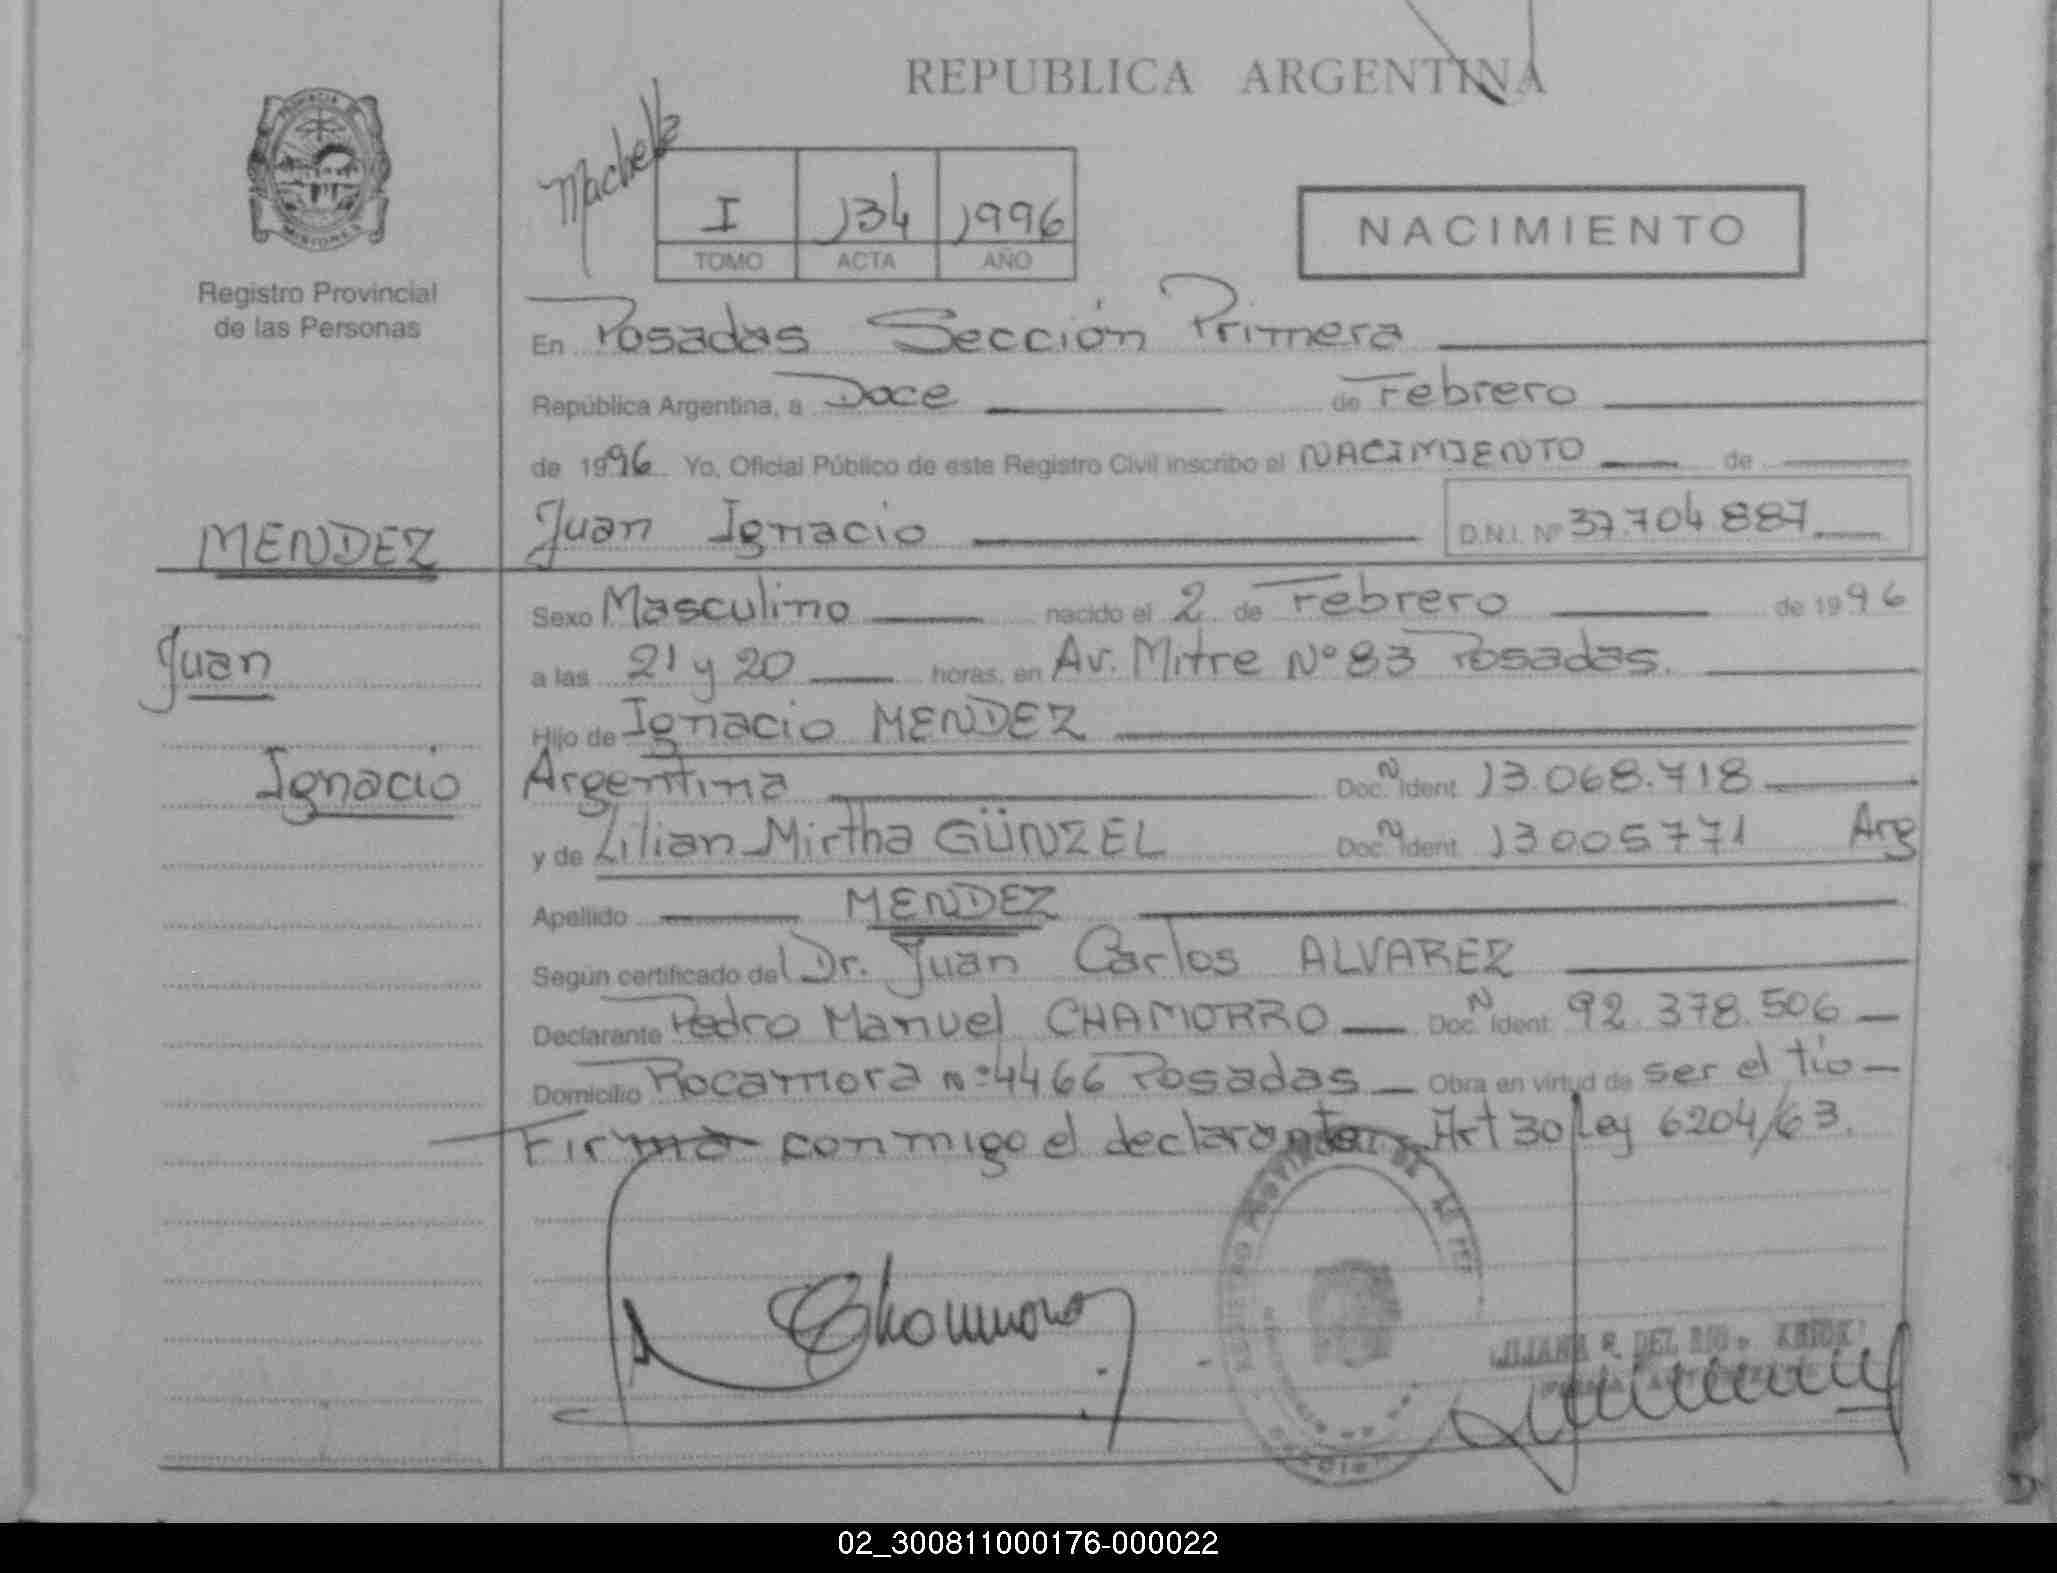 REPUBLICA ARGENTINA
I 134 1996
TOMO ACTA AÑO
NACIMIENTO
MISIONES
Registro Provincial
de las Personas
En Posadas Sección Primera
República Argentina, a Doce de Febrero
de 1996 Yo, Oficial Público de este Registro Civil inscribo el NACIMIENTO de
MENDEZ
Juan Ignacio D.N.I. Nº 37.704.887
Sexo Masculino nacido el 2 de Febrero de 1996
Juan
a las 21 y 20 horas, en Av. Mitre Nº 83 Posadas.
Hijo de Ignacio MENDEZ
Ignacio
Argentina Doc. N Ident. 13.068.718
y de Lilian Mirtha GÜNZEL Doc. N Ident. 13005771 Arg
Apellido MENDEZ
Según certificado del Dr. Juan Carlos ALVAREZ
Declarante Pedro Manuel CHAMORRO Doc. N Ident. 92.378.506
Domicilio Rocamora nº 4466 Posadas Obra en virtud de ser el tío
Firma conmigo el declarante Art 30 Ley 6204/63.
Chamorro
DEL RIO
02_300811000176-000022